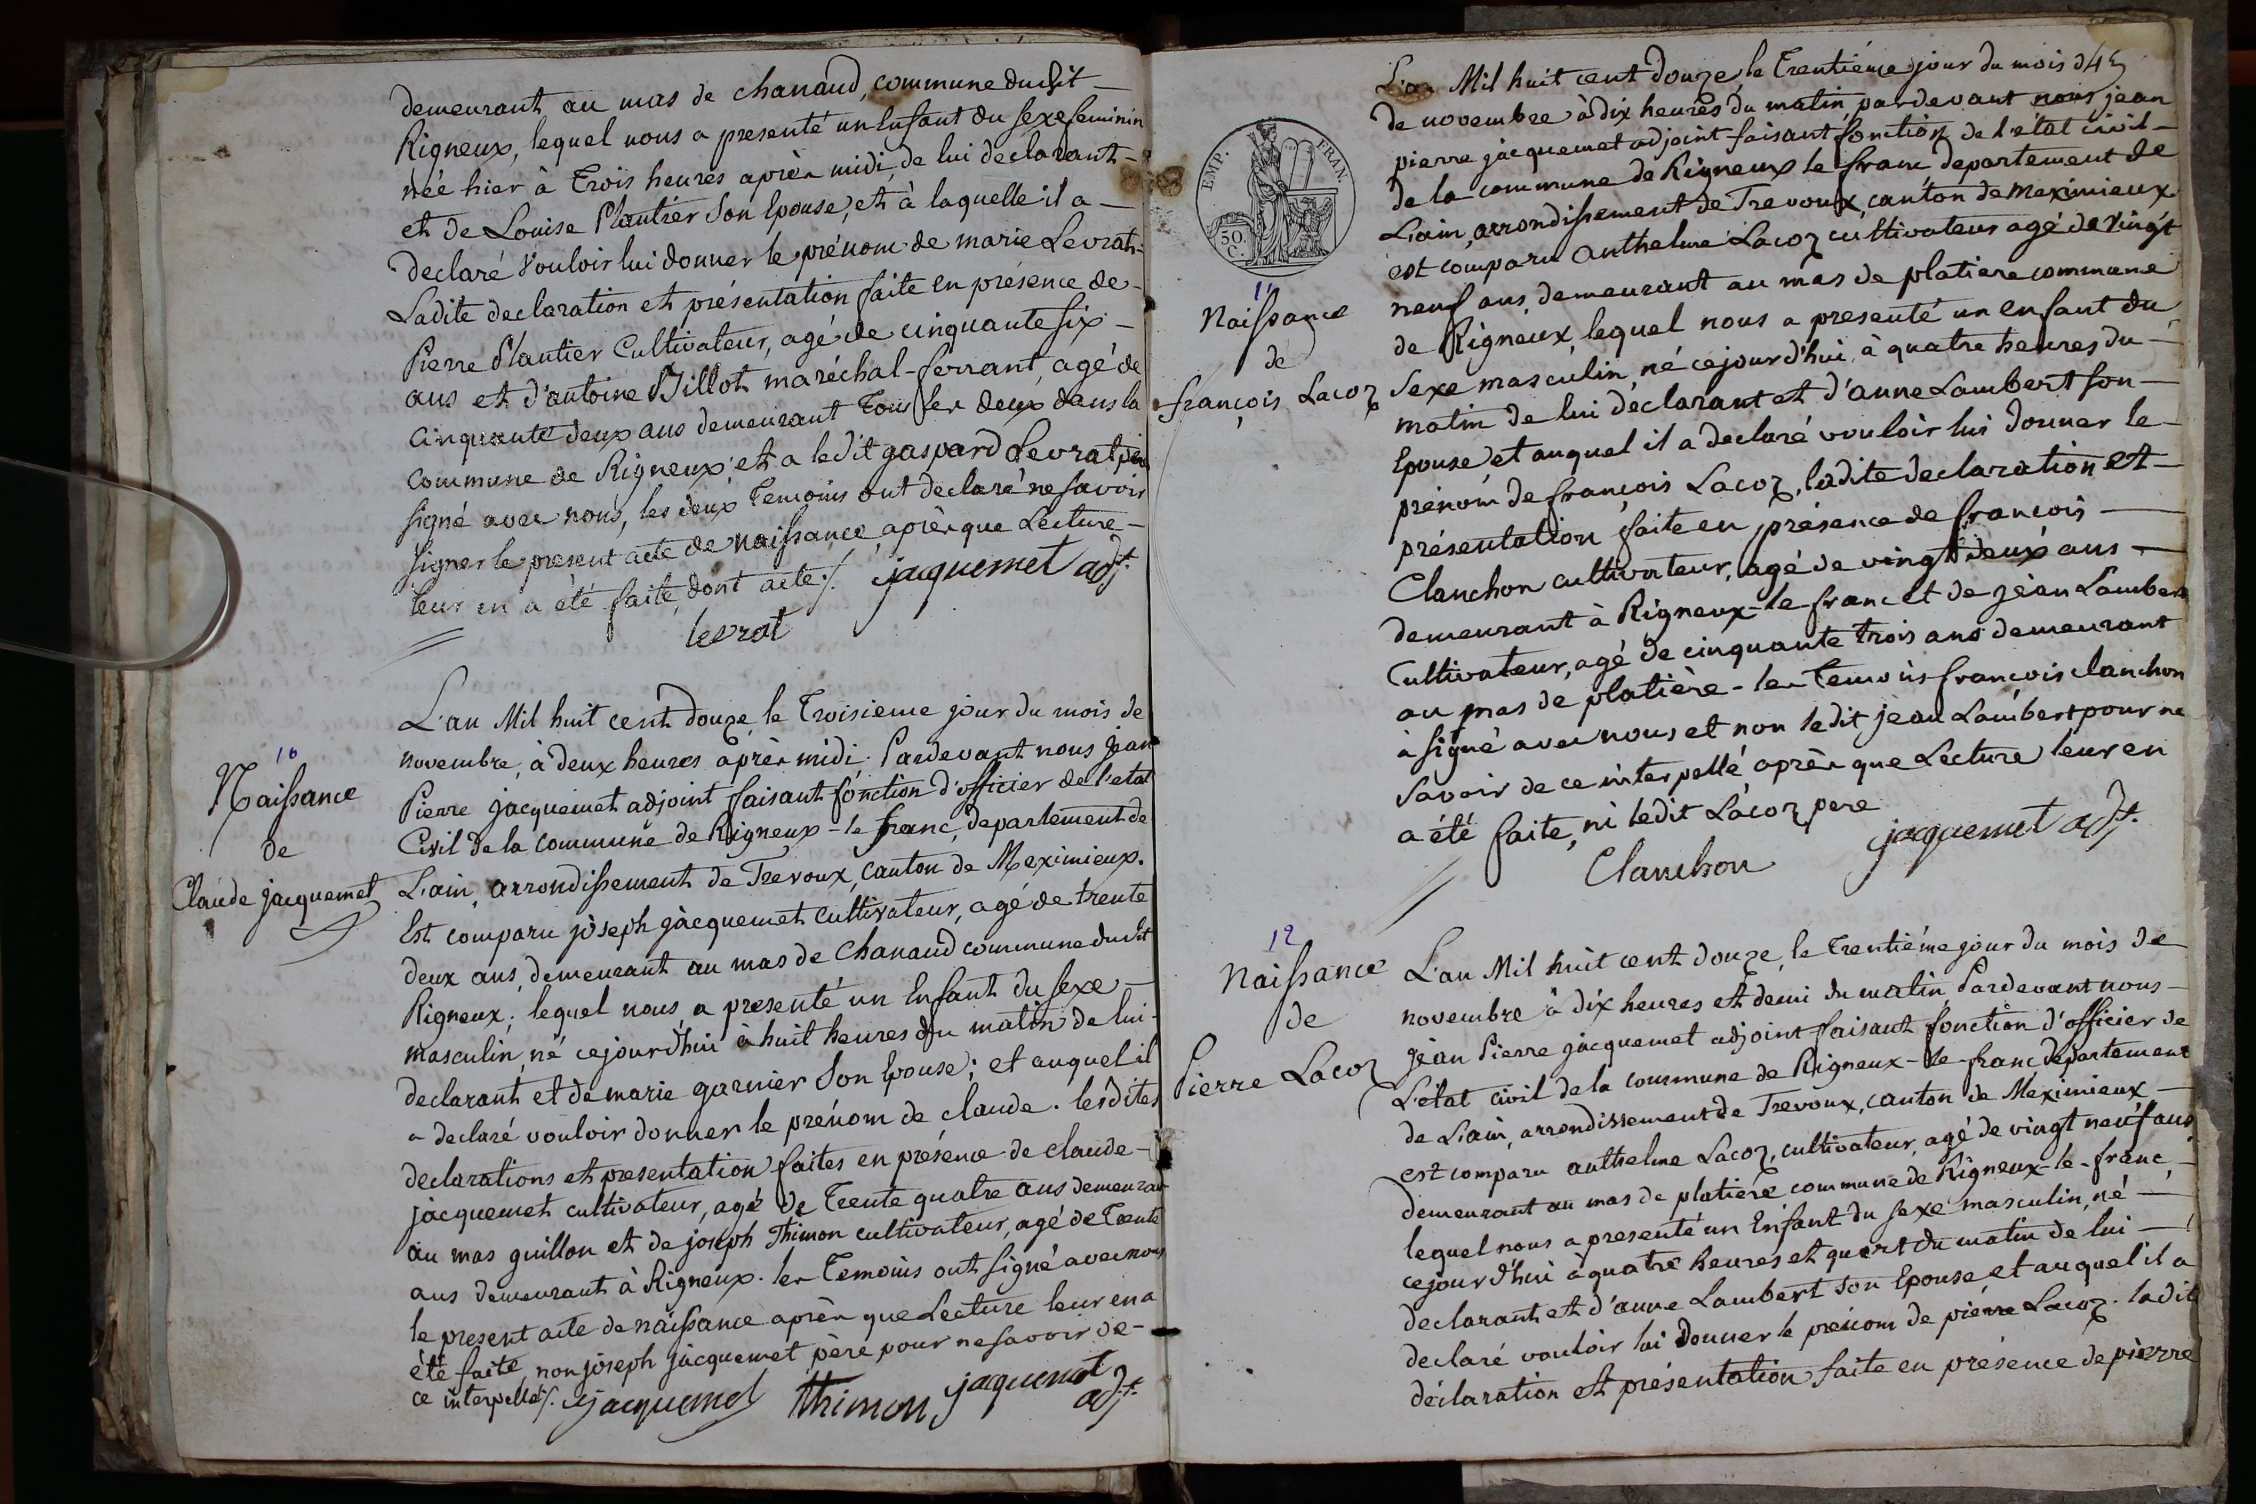 demeurant au mas de chanaud, commune dudit
Rigneux, lequel nous a presenté un Enfant du sexe feminin
née hier à Trois heures après midi, de lui declarant
et de Louise Plantier son Epouse, et à laquelle il a
declaré vouloir lui donner le prénom de marie Levrat
Ladite declaration et présentation faite en présence de
Pierre Plantier Cultivateur, agé de cinquante six
ans et d'antoine Billot maréchal-ferrant, agé de
cinquante deux ans demeurant Tous les deux dans la
commune de Rigneux et a ledit gaspard Levrat père
signé avec nous, les deux Temoins ont declaré ne savoir
signer le present acte de naissance après que Lecture
leur en a été faite, dont acte ⁒. jacquemet adjt.
levrat
10
Naissance
de
Claude jacquemet
L'an Mil huit cent douze, le Troisieme jour du mois de
novembre, à deux heures après midi. Pardevant nous Jean
Pierre jacquemet adjoint faisant fonction d'officier de l'etat
Civil de la commune de Rigneux-le franc, departement de
L'ain, arrondissement de Trevoux, canton de Meximieux.
Est comparu joseph jacquemet cultivateur, agé de trente
deux ans, demeurant au mas de Chanaud commune dudit
Rigneux, lequel nous a presenté un Enfant du sexe
masculin, né cejourd'hui à huit heures du matin de lui
declarant et de marie garnier son Epouse; et auquel il
a declaré vouloir donner le prénom de claude. lesdites
declarations et presentation faites en présence de claude
jacquemet cultivateur, agé de Trente quatre ans demeurant
au mas guillon et de joseph Thimon cultivateur, agé de Trente
ans demeurant à Rigneux. les Temoins ont signé avec nous
le present acte de naissance après que Lecture leur en a
été faite, non joseph jacquemet père pour ne savoir de
ce interpellé ⁒. jacquemet Thimon jaquemet
adjt.
L'an Mil huit cent douze, le Trentiéme jour du mois
de novembre à dix heures du matin pardevant nous jean
pierre jacquemet adjoint faisant fonction de l'état civil
de la commune de Rigneux le franc departement de
L'ain, arrondissement de Trevoux, canton de meximieux
est comparu anthelme Lacoz cultivateur agé de vingt
neuf ans, demeurant au mas de platiere commune
de Rigneux, lequel nous a presenté un enfant du
sexe masculin, né cejourd'hui à quatre heures du
matin de lui declarant et d'anne Lambert son
Epouse et auquel il a declaré vouloir lui donner le
prénom de françois Lacoz, ladite declaration et
présentation faite en présence de françois
Clanchon cultivateur, agé de vingt deux ans
demeurant à Rigneux-le-franc et de jean Lambert
Cultivateur, agé de cinquante trois ans demeurant
au mas de platière - les Temoins françois clanchon
à signé avec nous et non ledit jean Lambert pour ne
savoir de ce interpellé après que Lecture leur en
a été faite, ni ledit Lacoz pere
Clanchon jaquemet adjt.
EMP. FRAN.
50.
C.
11
Naissance
de
françois Lacoz
12
Naissance
de
Pierre Lacoz
L'an Mil huit cent douze, le Trentiéme jour du mois de
novembre à dix heures et demi du matin Pardevant nous
jean Pierre jacquemet adjoint faisant fonction d'officier de
L'état civil de la commune de Rigneux-le-franc departement
de L'ain, arrondissement de Trevoux, canton de Méximieux
est comparu anthelme Lacoz, cultivateur, agé de vingt neuf ans
demeurant au mas de platiére commune de Rigneux-le-franc,
lequel nous a presenté un Enfant du sexe masculin, né
cejourd'hui à quatre heures et quart du matin de lui
declarant et d'anne Lambert son Epouse et auquel il a
declaré vouloir lui donner le prénom de pierre Lacoz. ladite
déclaration et présentation faite en présence de pierre